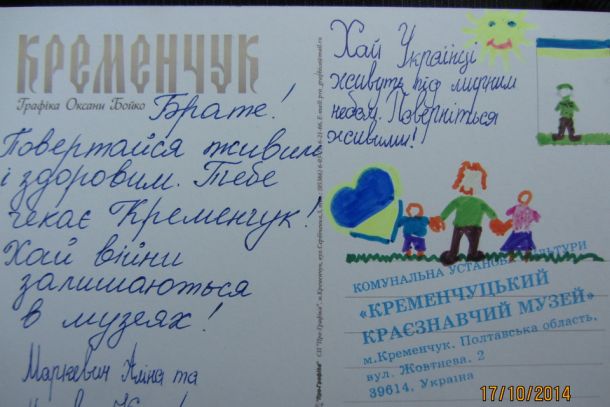 КРЕМЕНЧУК
Графіка Оксани Бойко
Брате!
Повертайся живим
і здоровим. Тебе
чекає Кременчук!
Хай війни
залишаються
в музеях!
Маркевич Аліна та
Хай Українці
живуть під мирним
небом. Поверніться
живими!
КОМУНАЛЬНА УСТАНОВА КУЛЬТУРИ
«КРЕМЕНЧУЦЬКИЙ
КРАЄЗНАВЧИЙ МУЗЕЙ»
м.Кременчук, Полтавська область,
вул. Жовтнева, 2
39614, Україна
17/10/2014